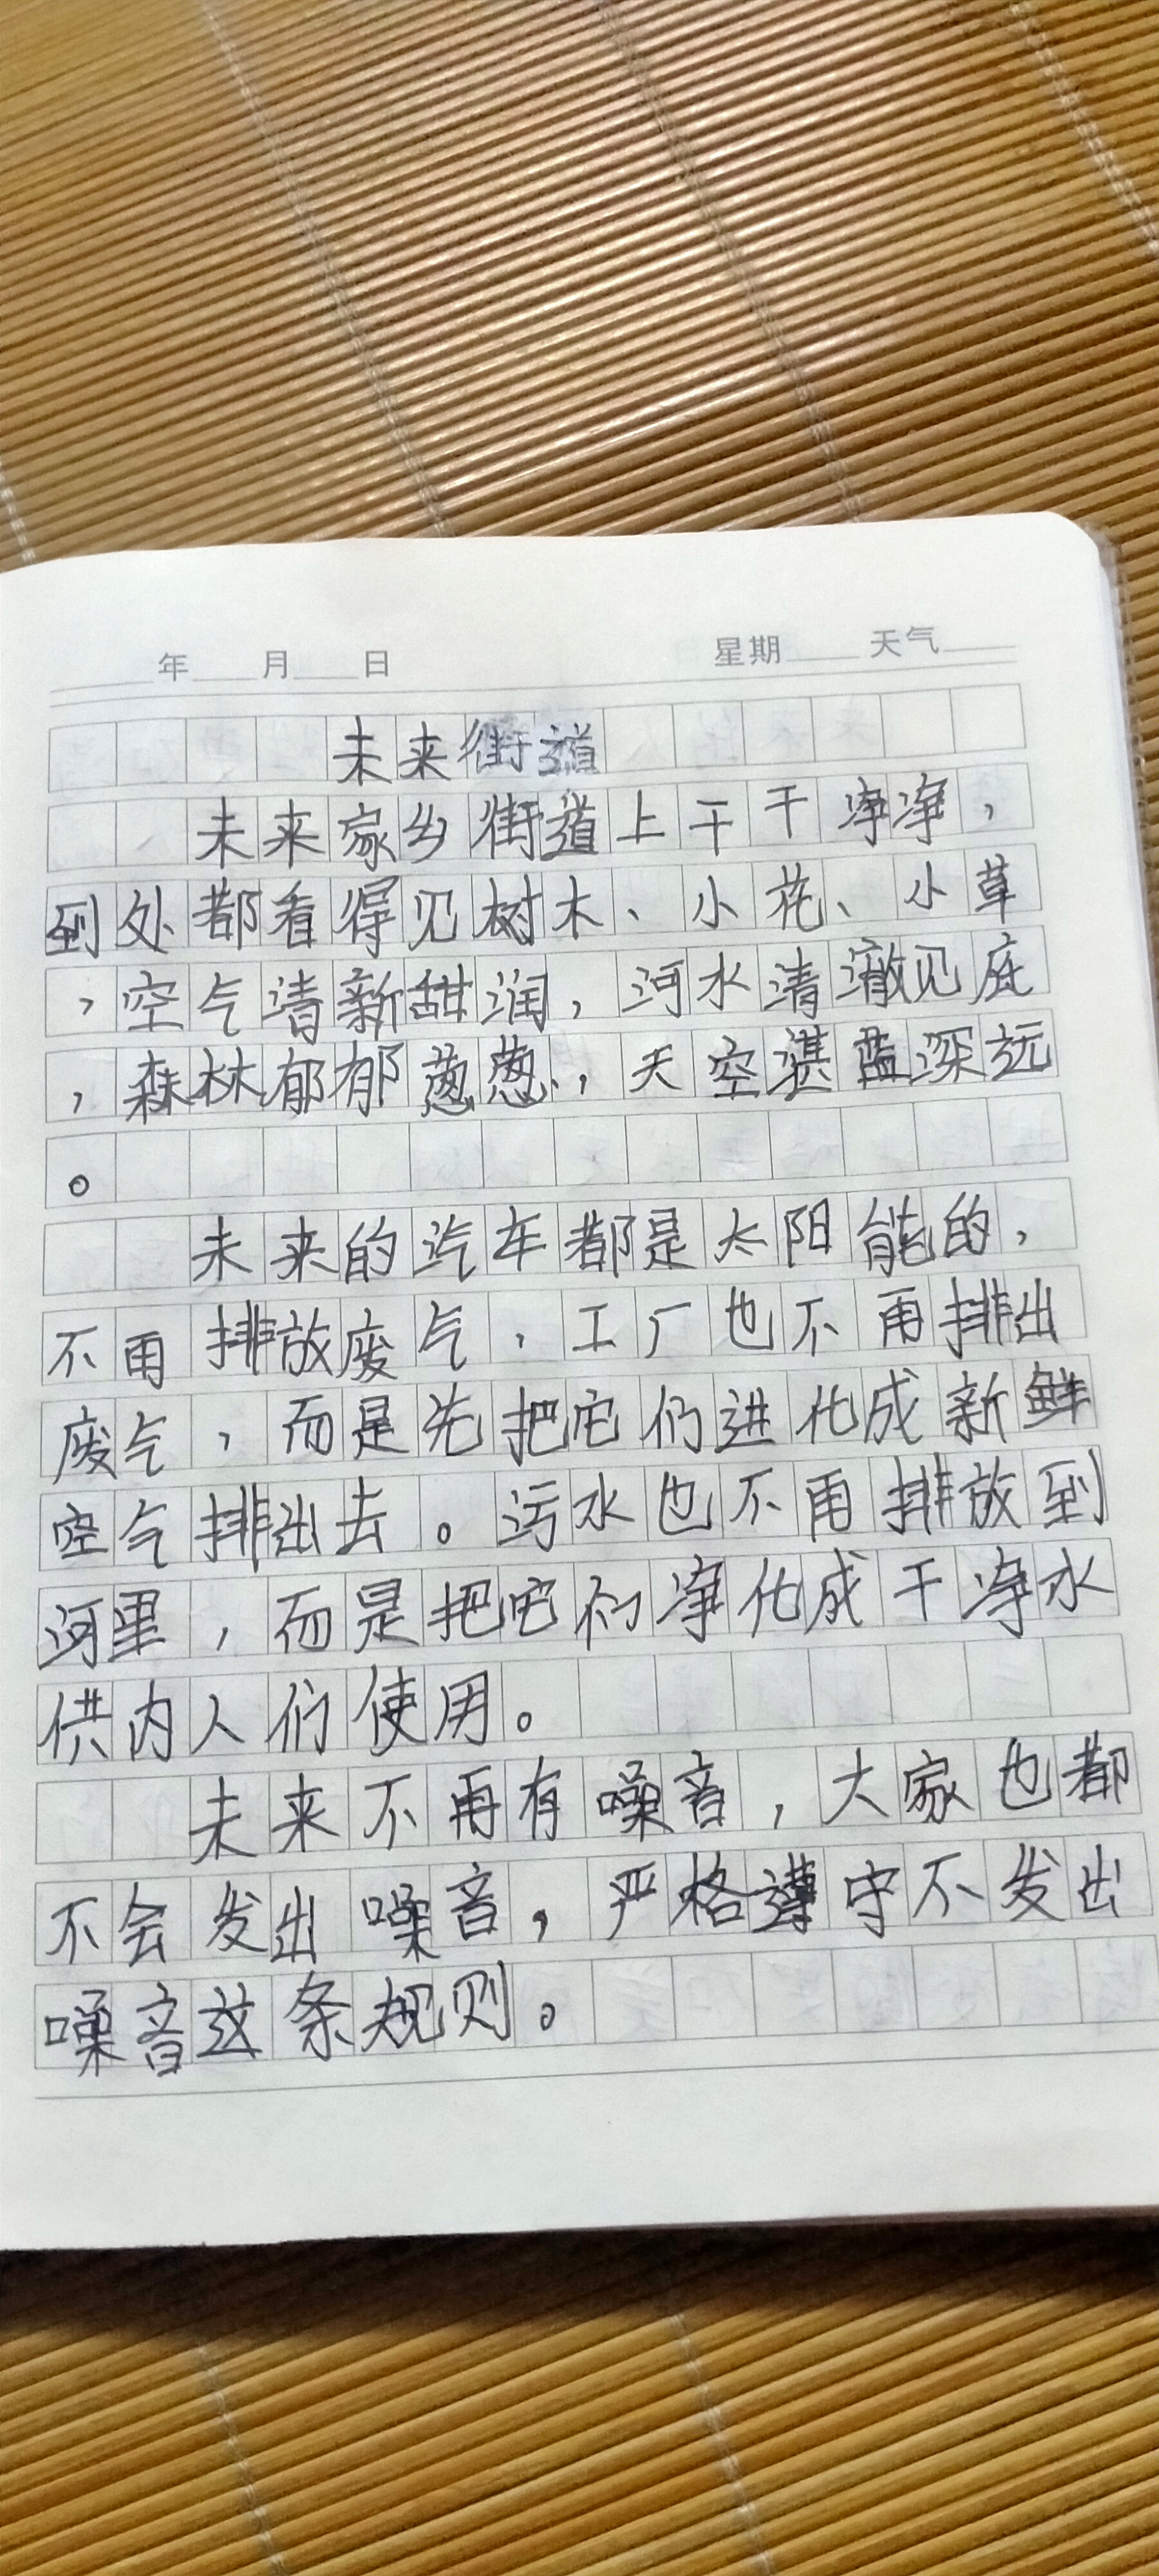 年 月 日 星期 天气
未来街道
未来家乡街道上干干净净，
到处都看得见树木、小花、小草
，空气清新甜润，河水清澈见底
，森林郁郁葱葱，天空湛蓝深远
。
未来的汽车都是太阳能的，
不再排放废气，工厂也不再排出
废气，而是先把它们进化成新鲜
空气排出去。污水也不再排放到
河里，而是把它们净化成干净水
供内人们使用。
未来不再有噪音，大家也都
不会发出噪音，严格遵守不发出
噪音这条规则。